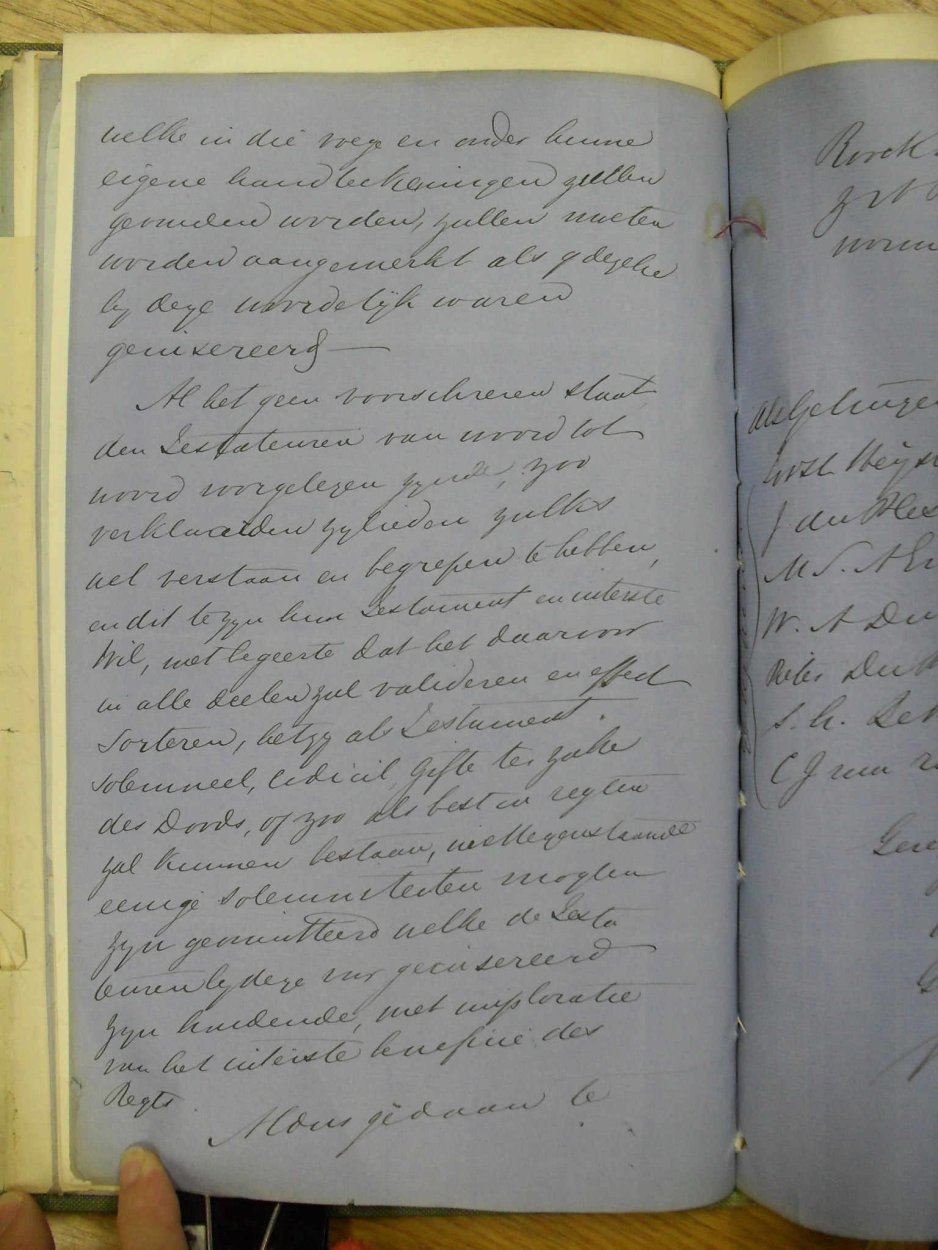 welke in die voege en onder hunne
eigene handteekeningen zullen
gevonden worden, zullen moeten
worden aangemerkt als of dezelve
by deze woordelyk waren
geinsereerd
Al het geen voorschreven staat
den Testateuren van woord tot
woord voorgelezen zynde, zoo
verklaarden zylieden zulks
wel verstaan en begrepen te hebben,
en dit te zyn hun Testament en uiterste
Wil, met begeerte dat het daarvoor
in alle deelen zal valideren en effect
Sorteren, hetzy als Testament
Solemneel, Codicil, Gifte ter zake
des Doods, of zoo als best in regten
zal kunnen bestaan, niettegenstaande
eenige Solemniteiten mogten
zyn geomitteerd welke de Testa
teuren by deze voor geinsereerd
zyn houdende, met imploratie
van het uiterste benificie des
Regts.
Aldus gedaan te
Als Getuigen
J du Ples
M S. A
W. A Du
Pieter Du
S. h.
C J van